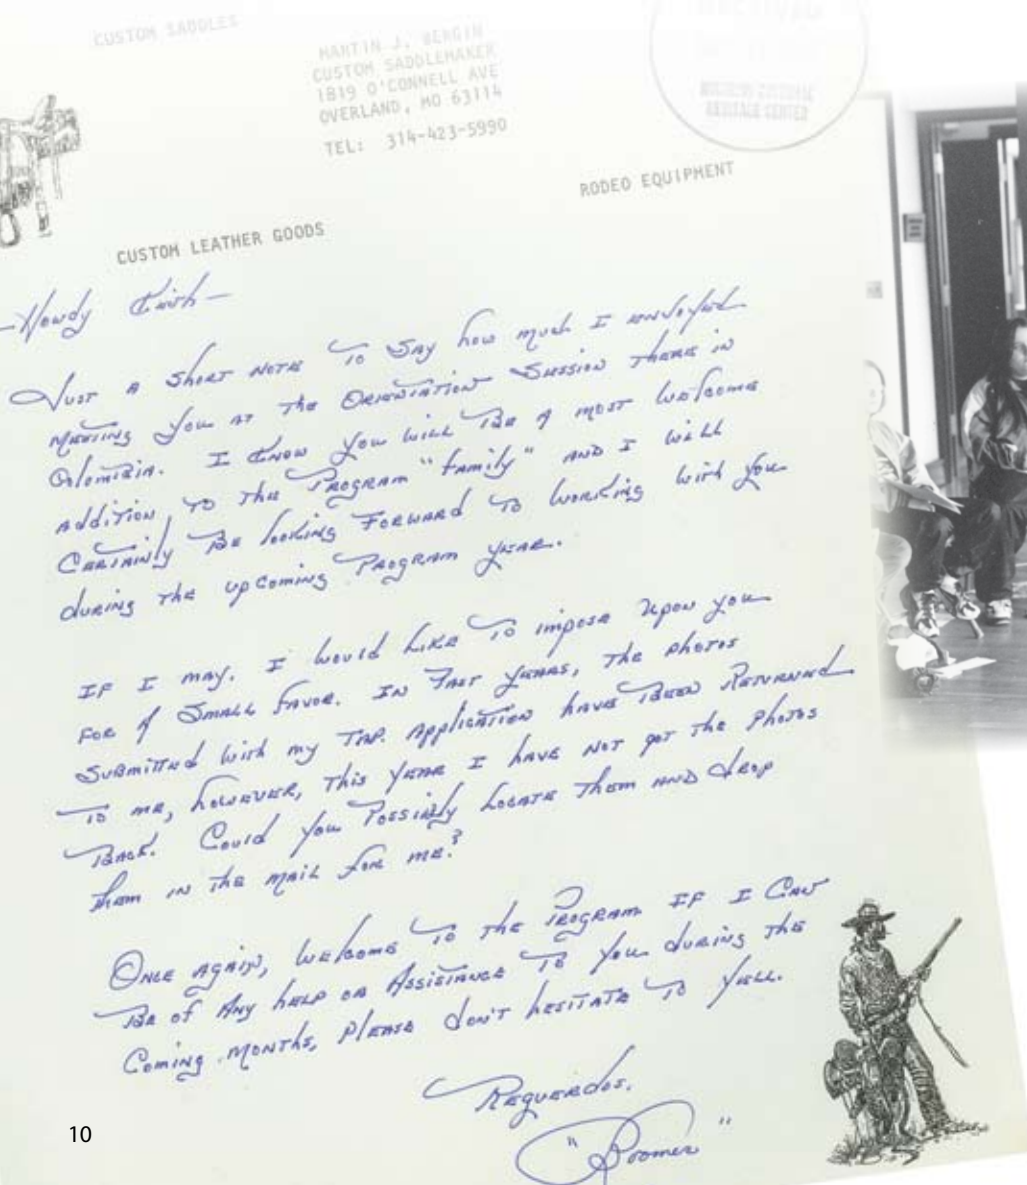 CUSTOM SADDLES
MARTIN J. BERGIN
CUSTOM SADDLEMAKER
1819 O'CONNELL AVE
OVERLAND, MO 63114
TEL: 314-423-5990
HERITAGE CENTER
RODEO EQUIPMENT
CUSTOM LEATHER GOODS
—Howdy —
Just a short note to say how much I enjoyed
meeting you at the Orientation Session there in
Columbia. I know you will be a most welcome
addition to the Program "family" and I will
certainly be looking forward to working with you
during the upcoming Program year.
If I may. I would like to impose upon you
for a small favor. In past years, the photos
submitted with my TAP. application have been returned
to me, however, this year I have not got the photos
back. Could you possibly locate them and drop
them in the mail for me?
Once again, welcome to the Program If I can
be of any help or assistance to you during the
coming months, please don't hesitate to yell.
Reguerdos.
"Boomer"
10